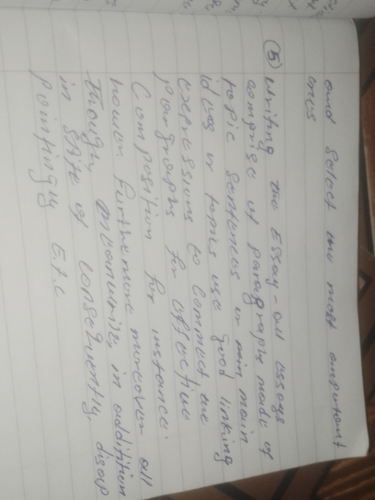 and Select the most important
ones
(5) writing the Essay - all essays
comprise of paragraphs made of
topic sentences or main
ideas or topics use good linking
expressions to connect the
paragraphs for effective
Composition for instance:
however furthermore moreover all
though, meanwhile, in addition
in spite of consequently, disap
pointingly E.t.c